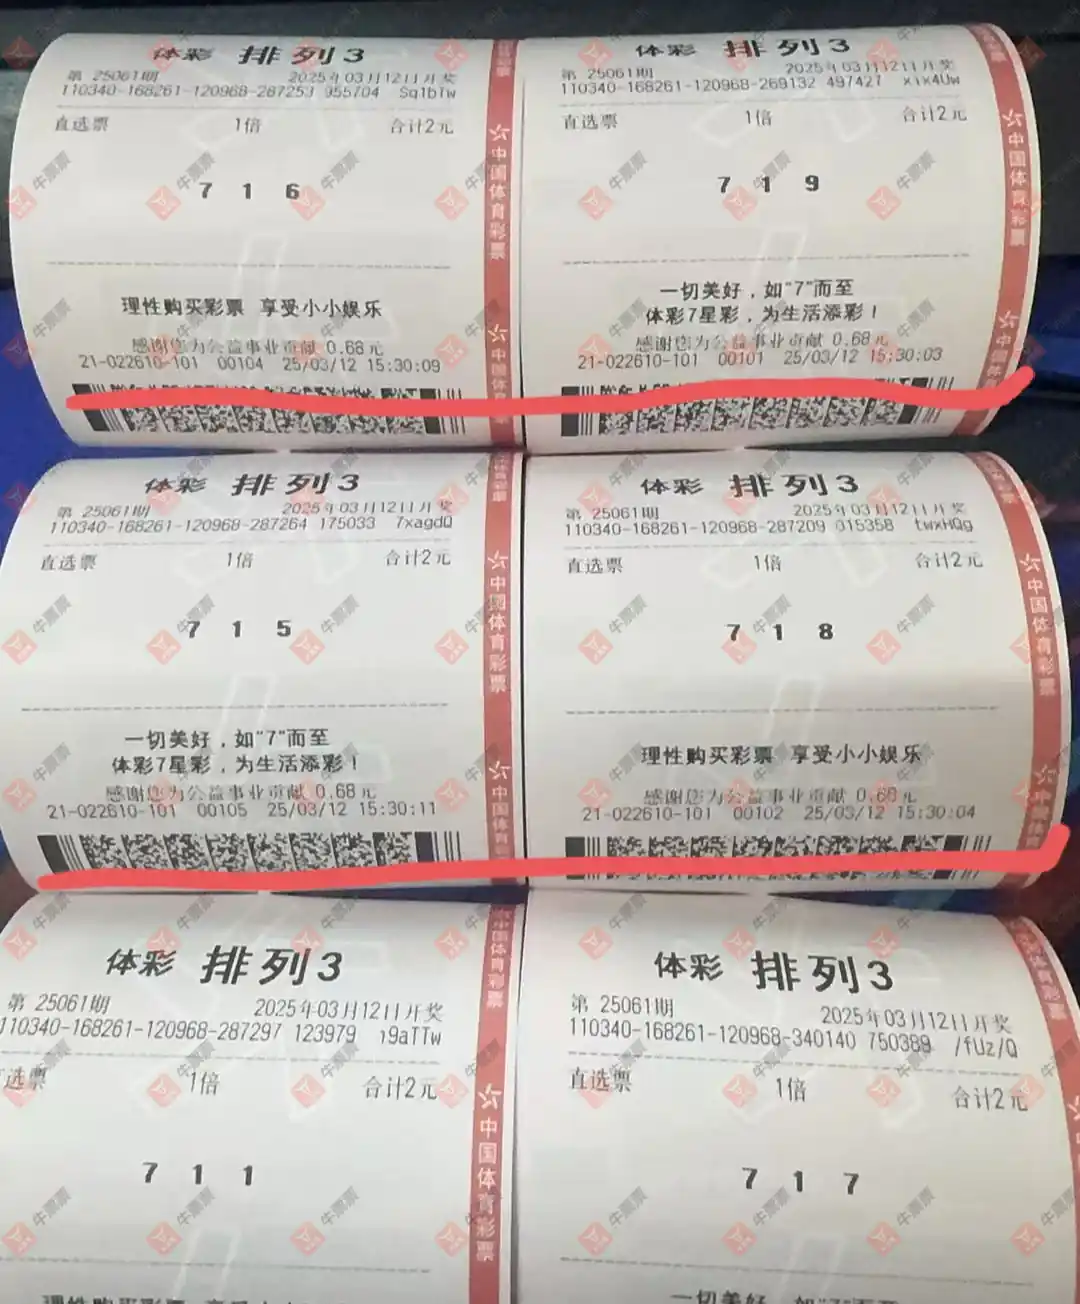 体彩 排列3
第 25061期 2025年03月12日开奖
110340-168261-120968-287253 955704 Sq1bTw
直选票 1倍 合计2元
7 1 6
理性购买彩票 享受小小娱乐
感谢您为公益事业贡献 0.68元
21-022610-101 00104 25/03/12 15:30:09
中国体育彩票
体彩 排列3
第 25061期 2025年03月12日开奖
110340-168261-120968-269132 497427 xix4Uw
直选票 1倍 合计2元
7 1 9
一切美好，如“7”而至
体彩7星彩，为生活添彩！
感谢您为公益事业贡献 0.68元
21-022610-101 00101 25/03/12 15:30:03
中国体育彩票
体彩 排列3
第 25061期 2025年03月12日开奖
110340-168261-120968-287264 175033 7xagdQ
直选票 1倍 合计2元
7 1 5
一切美好，如“7”而至
体彩7星彩，为生活添彩！
感谢您为公益事业贡献 0.68元
21-022610-101 00105 25/03/12 15:30:11
中国体育彩票
体彩 排列3
第 25061期 2025年03月12日开奖
110340-168261-120968-287209 015358 twxHQg
直选票 1倍 合计2元
7 1 8
理性购买彩票 享受小小娱乐
感谢您为公益事业贡献 0.68元
21-022610-101 00102 25/03/12 15:30:04
中国体育彩票
体彩 排列3
第 25061期 2025年03月12日开奖
110340-168261-120968-287297 123979 9aTTw
直选票 1倍 合计2元
7 1 1
理性购买彩票 享受小小娱乐
中国体育彩票
体彩 排列3
第 25061期 2025年03月12日开奖
110340-168261-120968-340140 750389 /fUz/Q
直选票 1倍 合计2元
7 1 7
一切美好，如“7”而至
牛票票